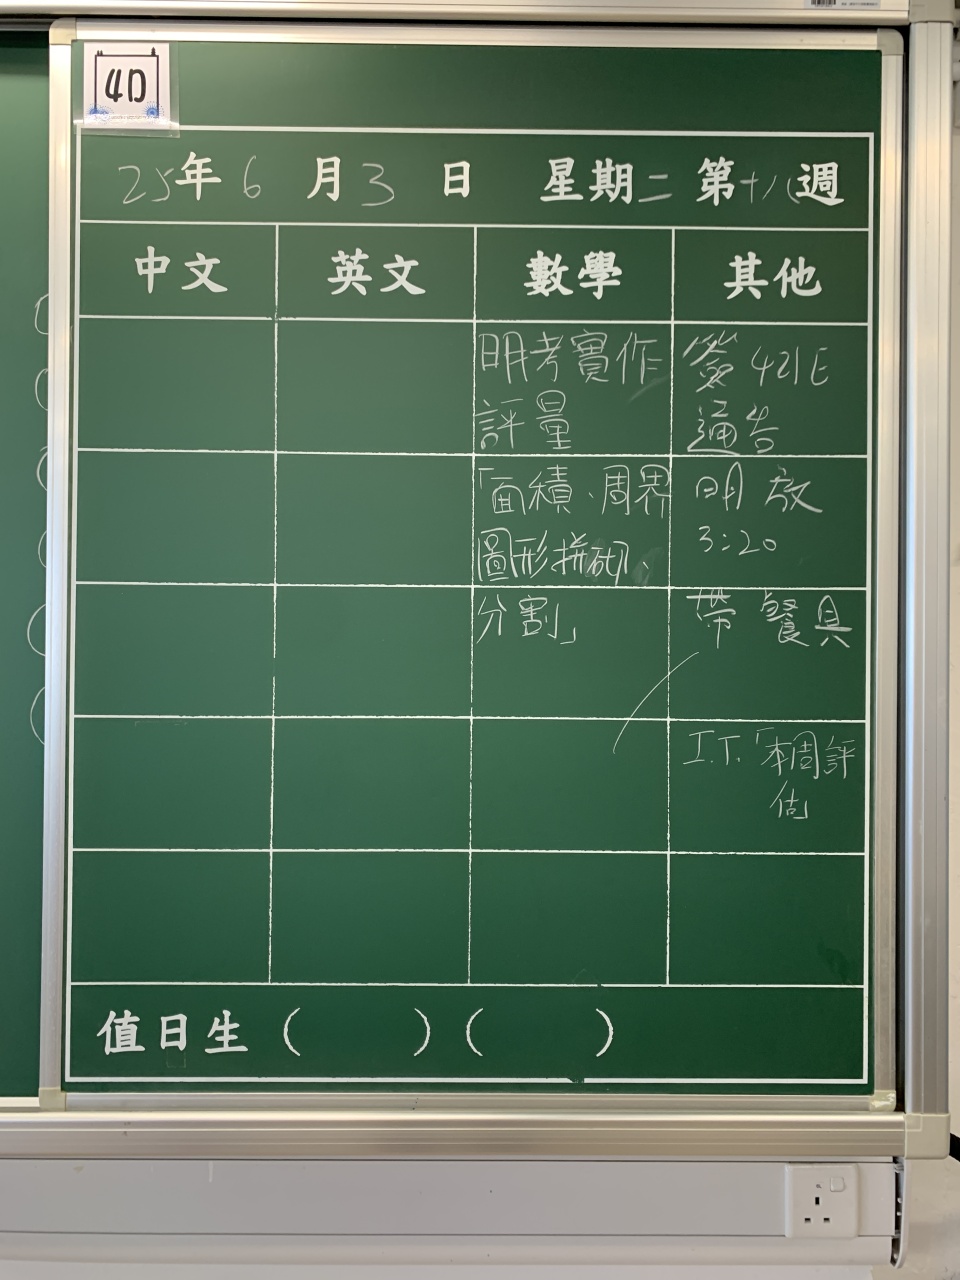 4D
25年6月3日 星期二 第十八週
中文 英文 數學 其他
明考實作
評量
「面積、周界
圖形拼砌、
分割」
簽421E
通告
明放
3:20
帶餐具
I.T.「本周評
估」
值日生 （ ）（ ）